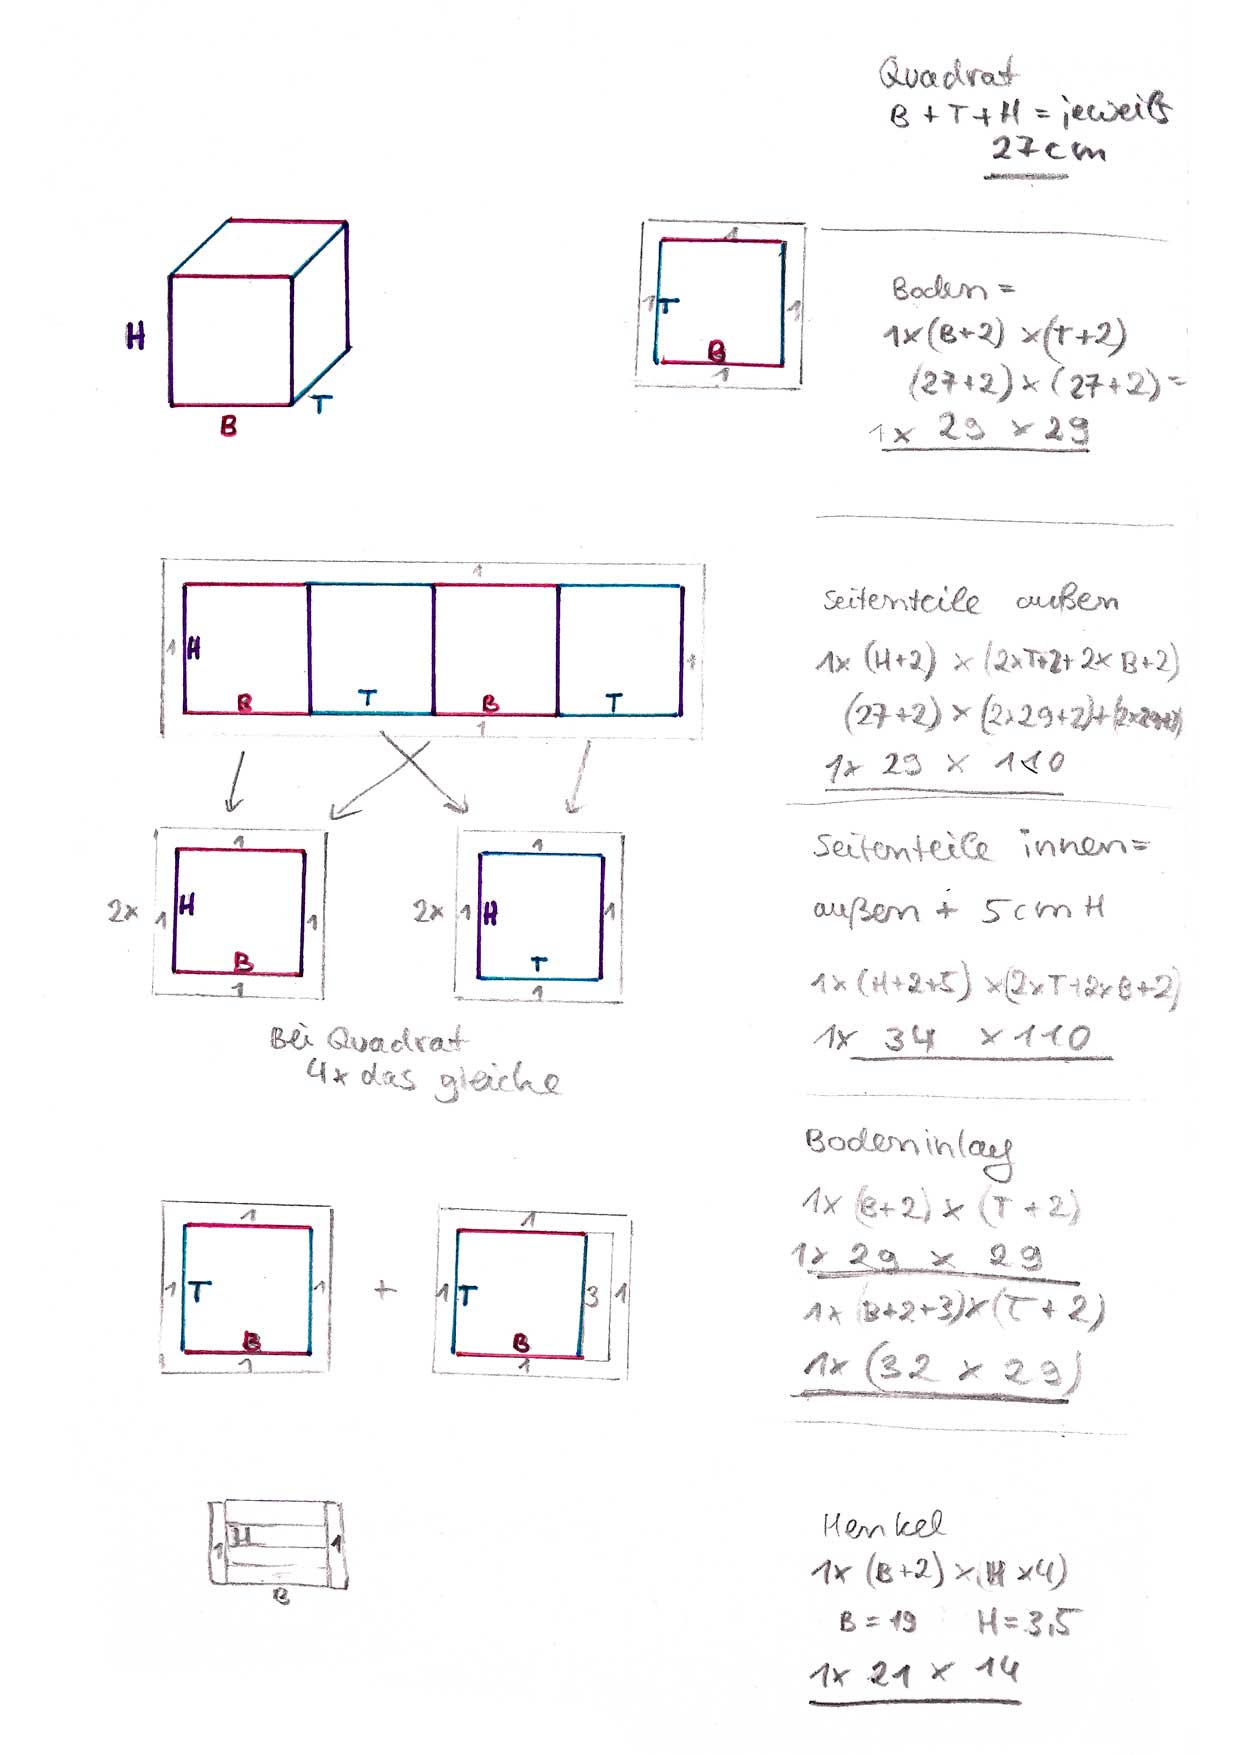 Quadrat
B + T + H = jeweils
27cm
H
B
T
1
1
T
1
B
1
Boden =
1x (B+2) x (T+2)
(27+2) x (27+2) =
1x 29 x 29
1
1
H
1
B
T
B
T
1
Seitenteile außen
1x (H+2) x (2xT+2+2x B+2)
(27+2) x (2x29+2)+
1x 29 x 110
2x
1
1
H
1
B
1
2x
1
1
H
1
T
1
Bei Quadrat
4x das gleiche
Seitenteile innen=
außen + 5cm H
1x (H+2+5) x(2xT+2xB+2)
1x 34 x 110
1
1
T
1
B
1
+
1
1
T
3
1
B
1
Bodeninlay
1x (B+2) x (T+2)
1x 29 x 29
1x (B+2+3)x(T+2)
1x (32 x 29)
1
H
1
B
Henkel
1x (B+2) x (H x4)
B = 19 H = 3,5
1x 21 x 14